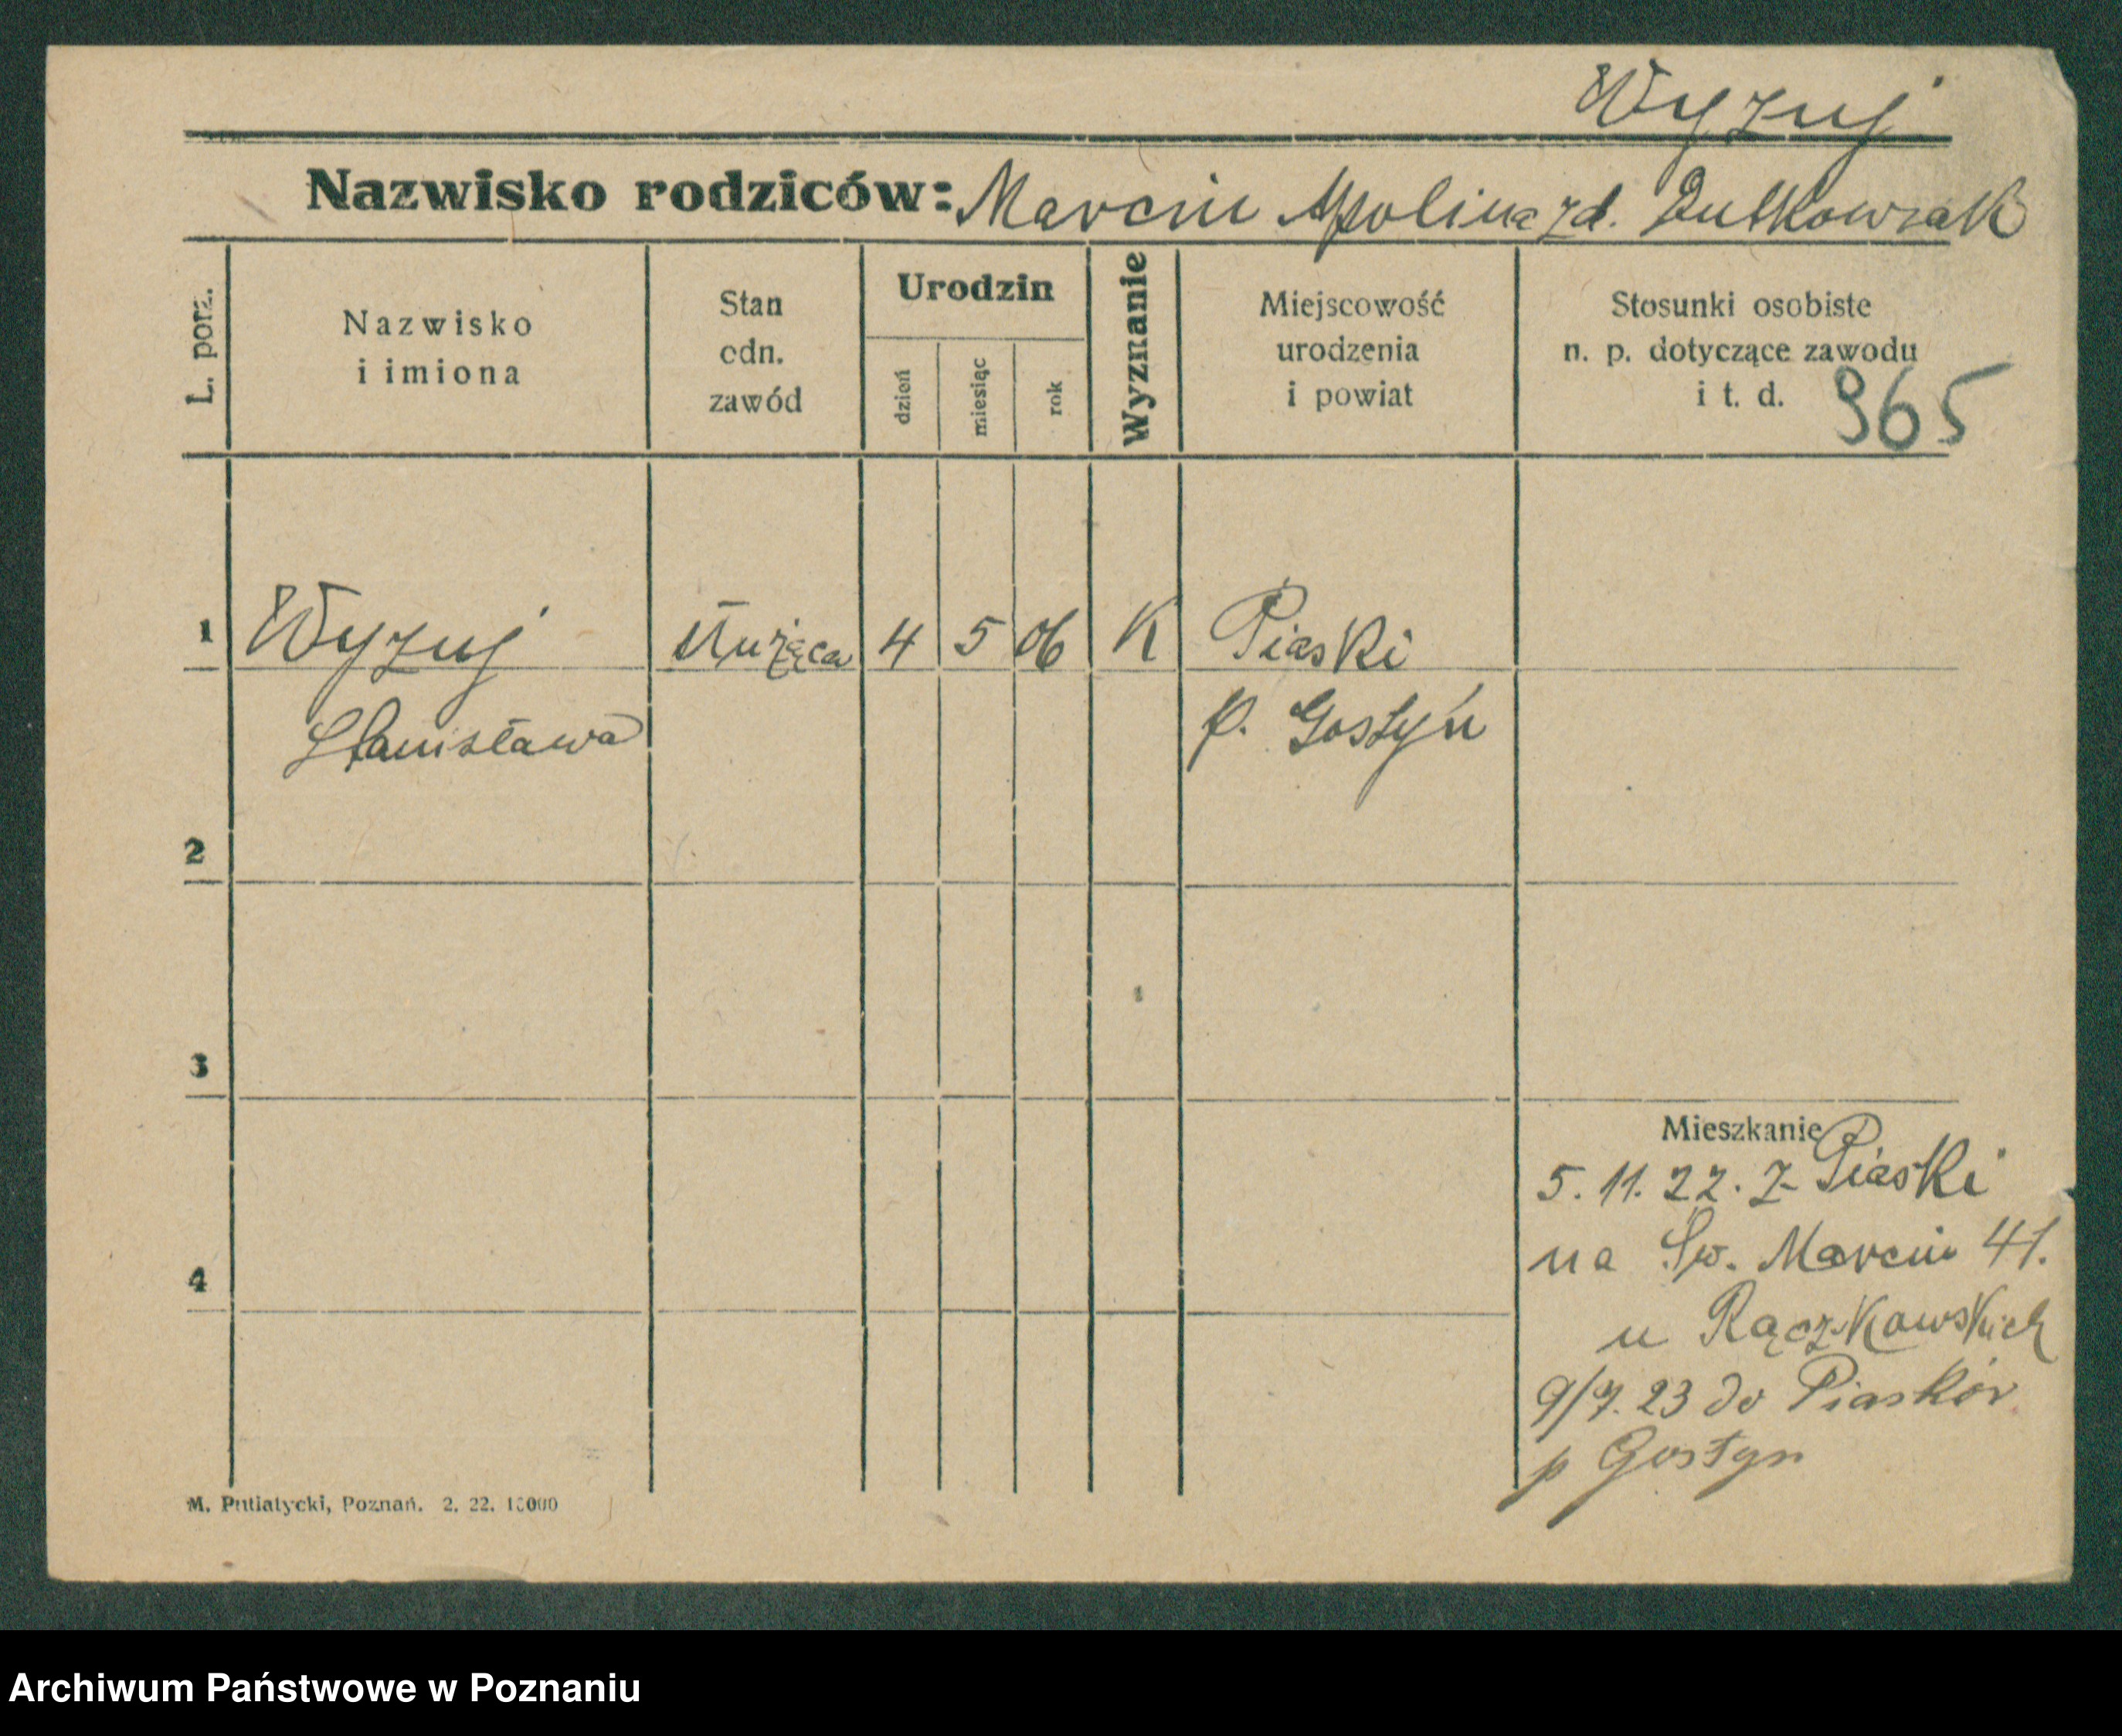 Wyzuj
Nazwisko rodziców: Marcin Apolina zd. Dutkowiak
L. porz.
Nazwisko
i imiona
Stan
odn.
zawód
Urodzin
dzień
miesiąc
rok
Wyznanie
Miejscowość
urodzenia
i powiat
Stosunki osobiste
n. p. dotyczące zawodu
i t. d.
965
1 Wyzuj służąca 4 5 06 K Piaski
Stanisława p. Gostyń
2
3
4
Mieszkanie
5. 11. 22. z Piaski
na Św. Marcin 41.
u Rączkowskich
9/7. 23 do Piasków
p Gostyn
M. Putiatycki, Poznań. 2. 22. 10000
Archiwum Państwowe w Poznaniu